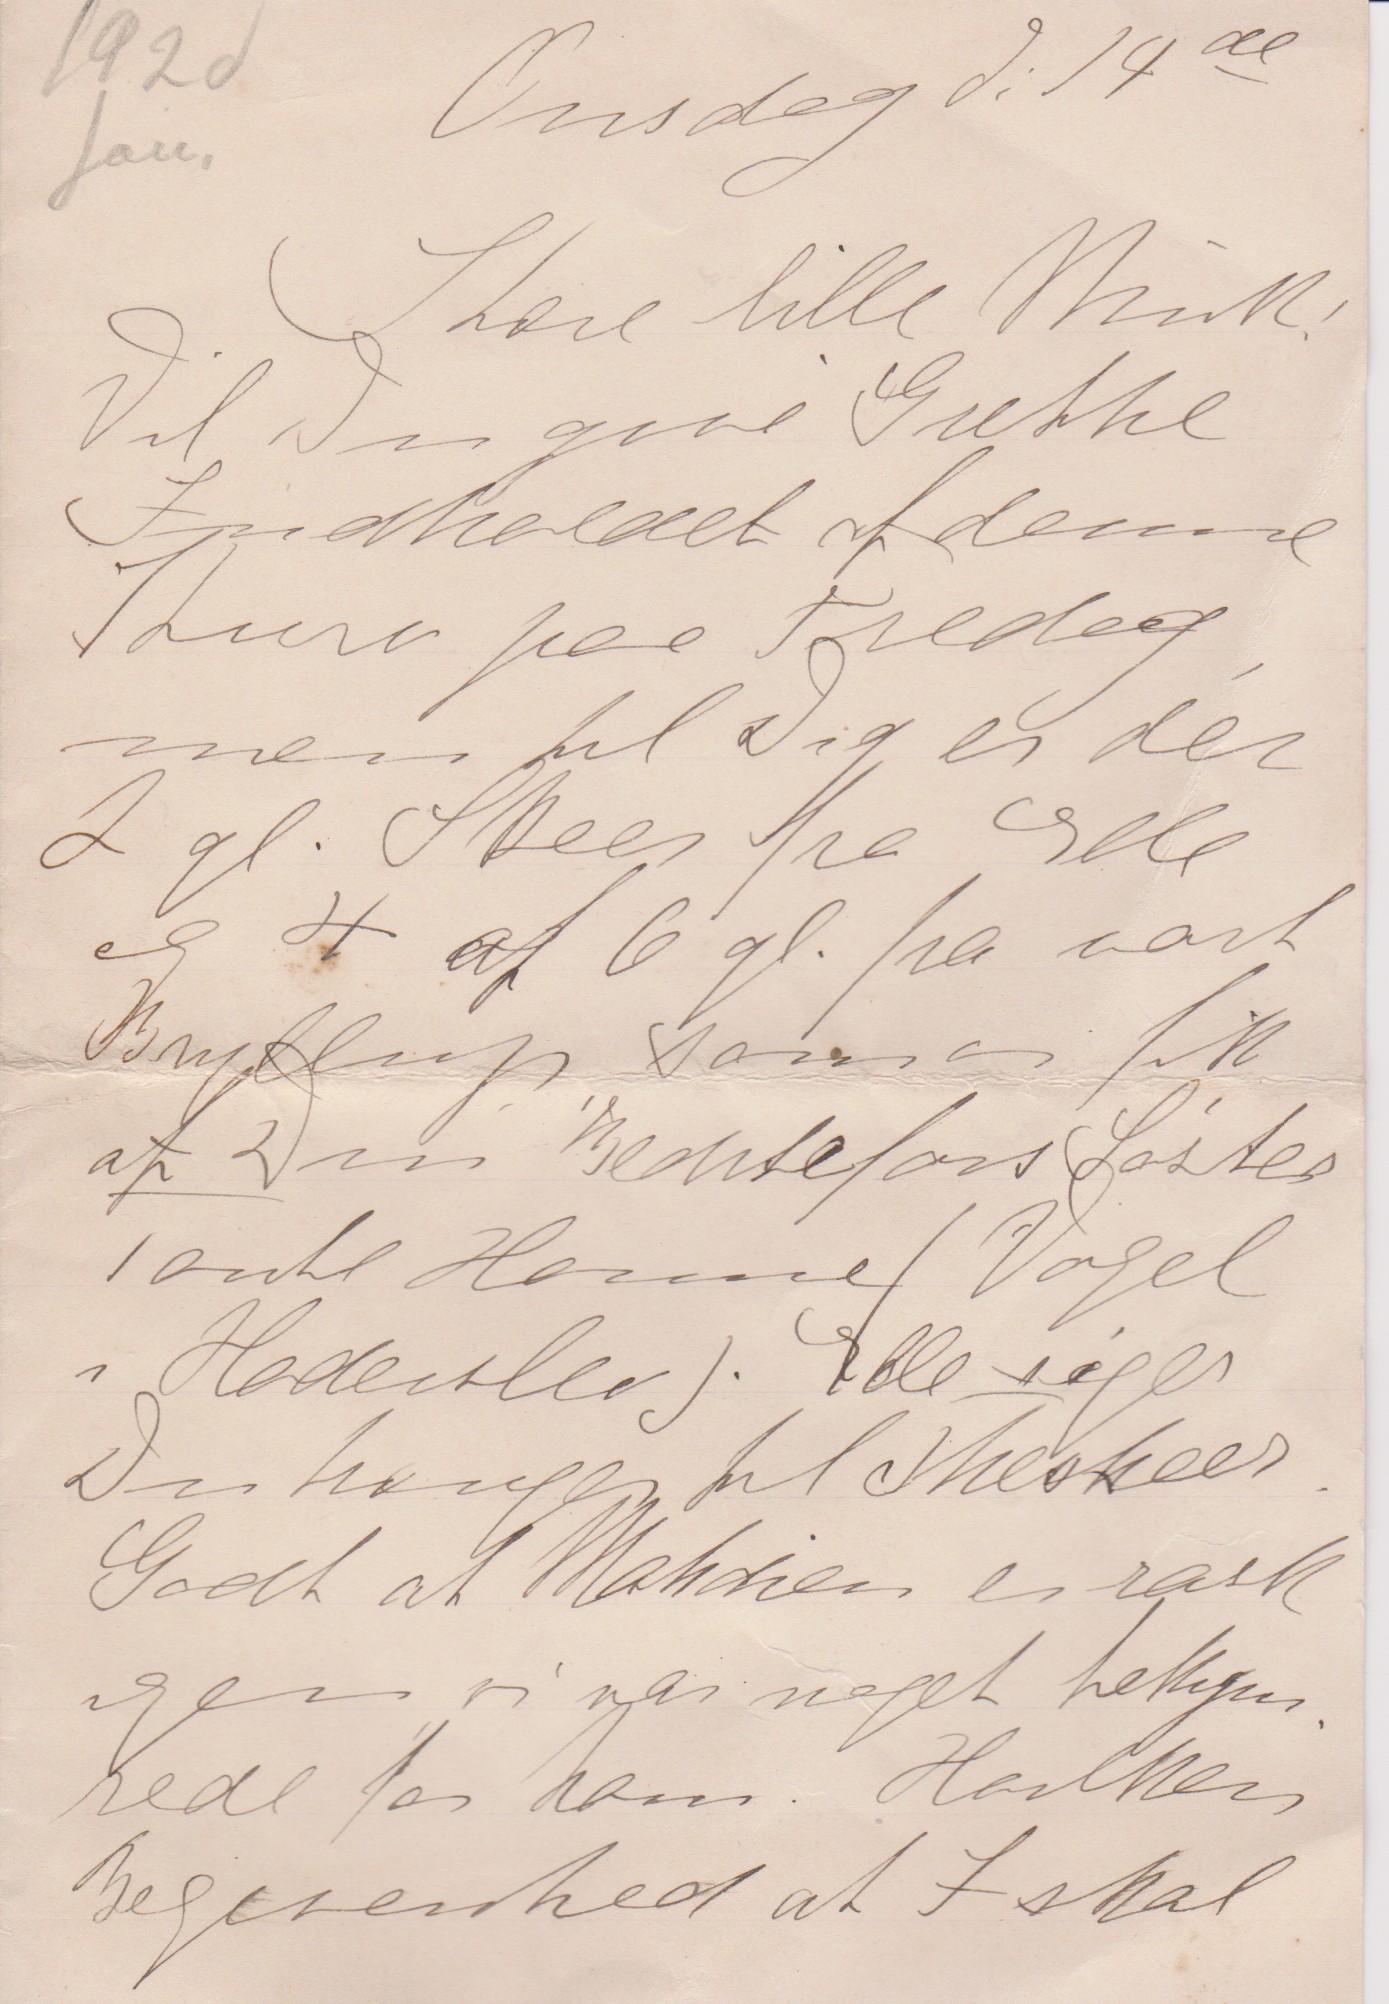 1920
Jan.
Onsdag d: 14 de
Kære lille Muk!
Vil Du give Grethe
Indholdet af denne
Kurv paa Fredag,
men til Dig er der
2 gl. Skeer fra Elle
og 4 af 6 gl. fra vort
Bryllup som vi fik
af Din Bedstefars Søster
Tante Hanne (Vogel
i Haderslev). Elle siger
Du trænger til Theskeer.
Godt at Mathies er rask
igen vi var noget bekym-
rede for ham. Hvilken
Begivenhed at I skal